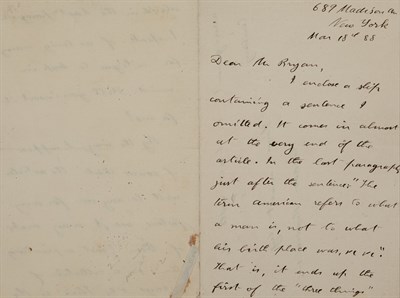 689 Madison Av
New York
Mar 18th 88
Dear Mr Bryan,
I enclose a slip
containing a sentence I
omitted. It comes in almost
at the very end of the
article. In the last paragraph
just after the sentence "The
term American refers to what
a man is, not to what
his birth place was, &c &c".
That is, it ends up the
first of the "three things"